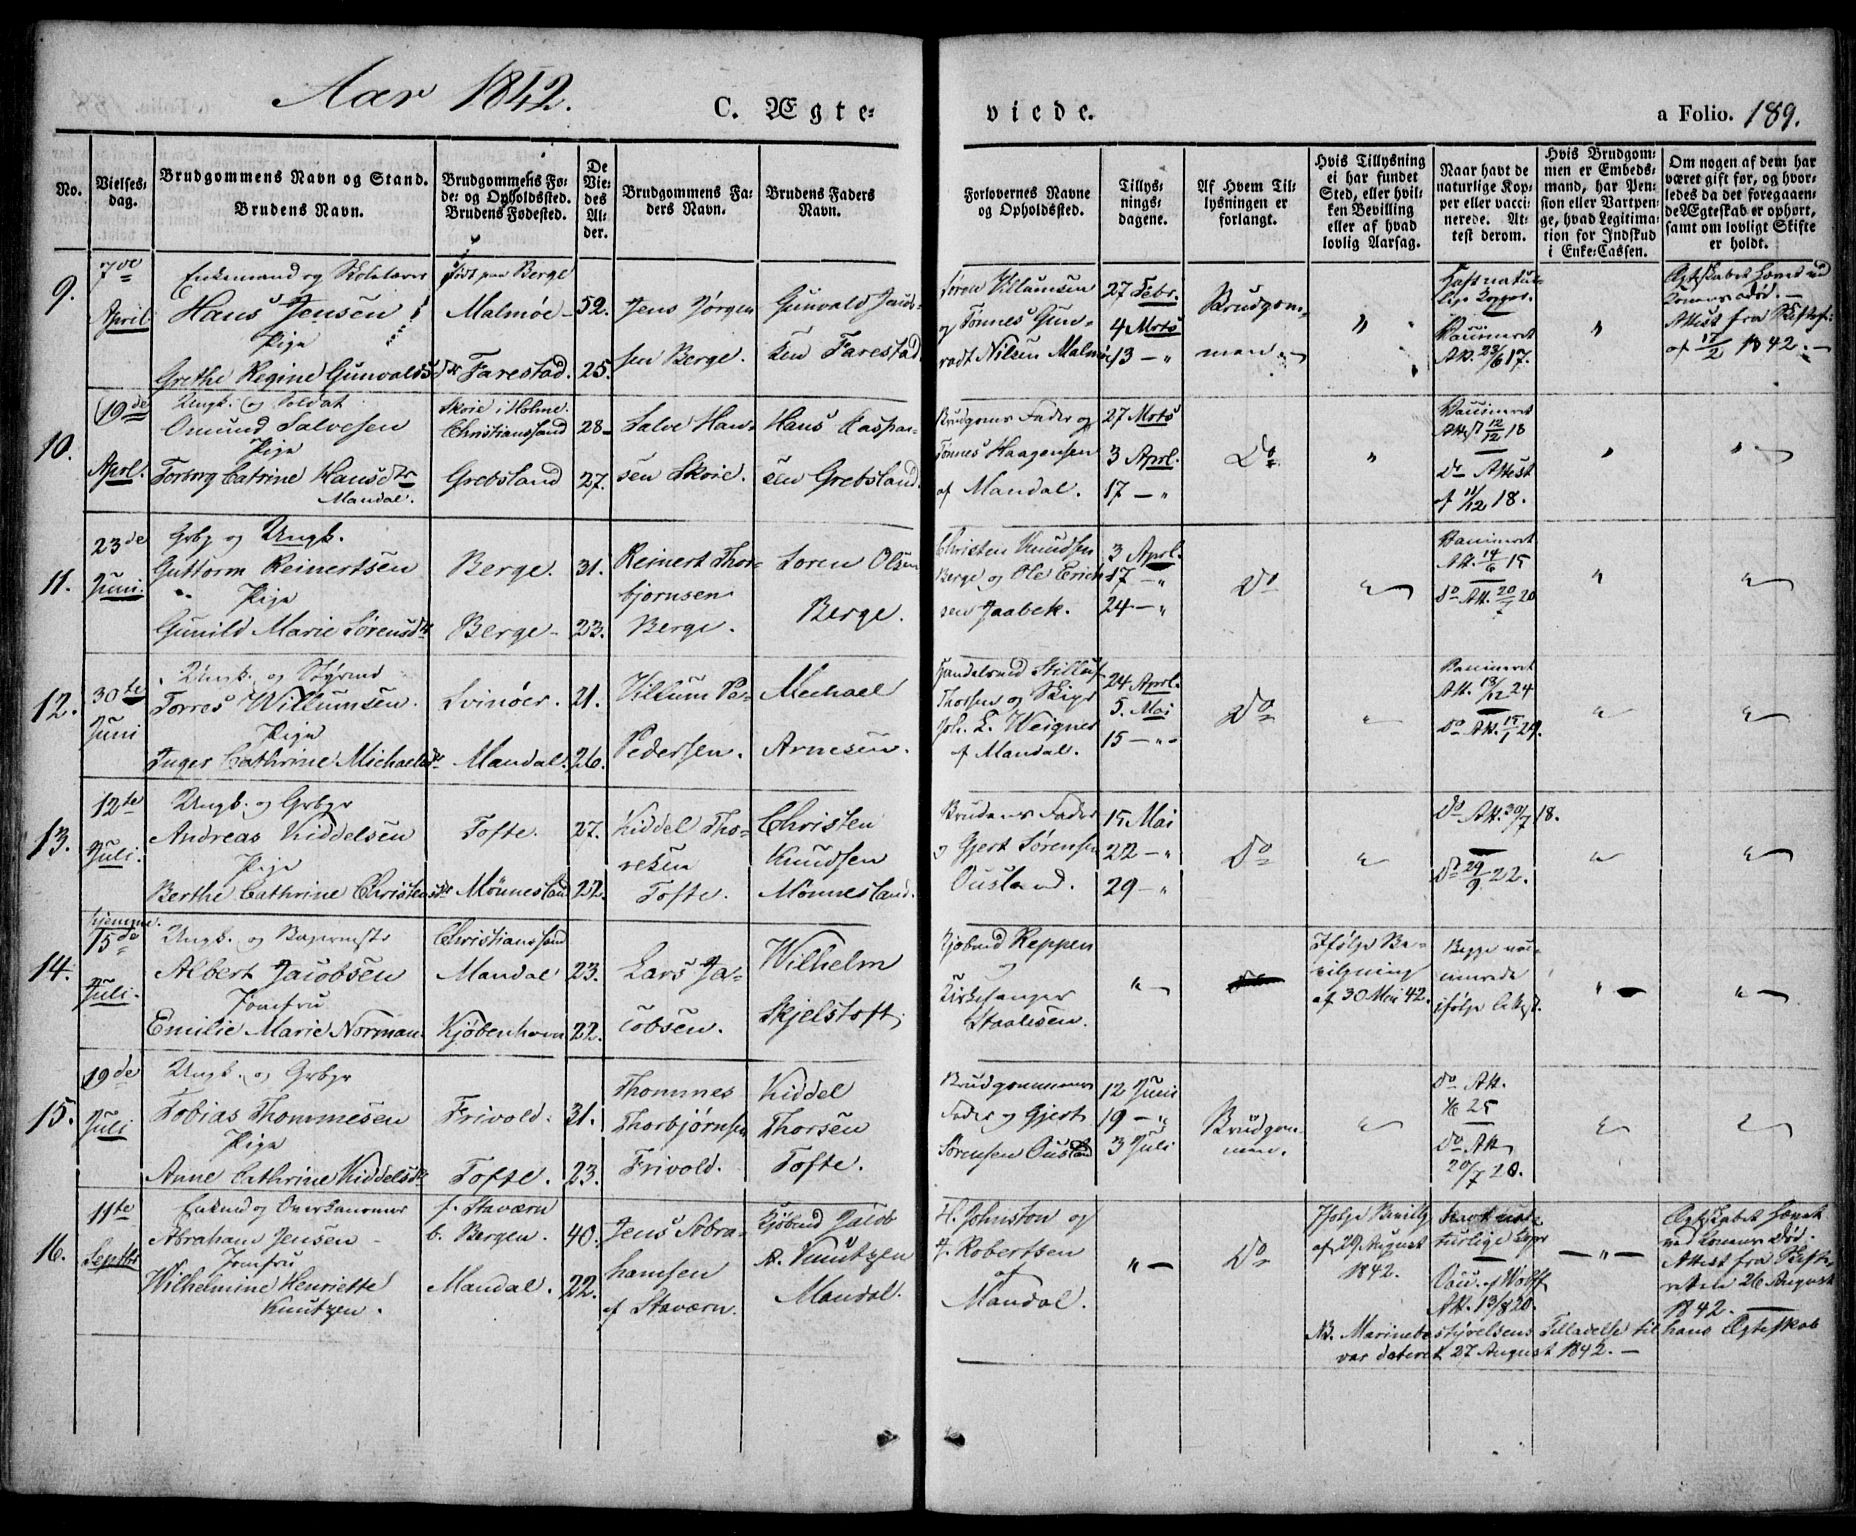 Aar 1842.
C. Ægte-
viede.
a Folio. 189.
No.
Vielses-
dag.
Brudgommens Navn og Stand.
Brudens Navn.
Brudgommens Fø-
de- og Opholdsted.
Brudens Fødested.
De
Vie-
des
Al-
der.
Brudgommens Fa-
ders Navn.
Brudens Faders
Navn.
Forlovernes Navne
og Opholdsted.
Tillys-
nings-
dagene.
Af Hvem Til-
lysningen er
forlangt.
Hvis Tillysning
ei har fundet
Sted, eller hvil-
ken Bevilling
eller af hvad
lovlig Aarsag.
Naar havt de
naturlige Kop-
per eller vacci-
nerede. At-
test derom.
Hvis Brudgom-
men er Embeds-
mand, har Pen-
sion eller Vartpen-
ge, hvad Legitima-
tion for Indskud
i Enke-Cassen.
Om nogen af dem har
været gift før, og hvor-
ledes da det foregaaen-
de Ægteskab er ophørt,
samt om lovligt Skifte
er holdt.
9.
7de
April
Enkemand og Skolelærer
Hans Jensen
Pige
Grethe Regine Gunvaldsdr
født paa Berge
Malmøe
Farestad.
52.
25.
Jens Jørgen
sen Berge.
Gunvald
ken Farestad
Søren Villumsen
og Tønnes Gun-
vadt Nilsen Malmø
27 Febr.
4 Mrts
13 — "
Brudgom-
men.
"
Haft natur-
lige Kopper.
Vaccineret
Att. 23/6 17.
"
Egteskabet hævet ved
Konens Død. —
Attest fra Skifter
af 17/2 1842. —
10.
19de
Aprl.
Ungk. og Soldat
Omund Salvesen
Pige
Torborg Catrine Hansdtr
Mandal.
Skoie i Holme.
Christianssand
Grebsland
28
27.
Salve Han-
sen Skoie.
Hans Kaspar-
sen Grebsland.
Brudgoms Fader og
Tønnes Haagensen
af Mandal.
27 Mrts
3 Aprl.
17 — "
Do
"
Vaccineret
Attest 12/12 18
do Attest
af 11/12 18.
"
"
11.
23de
Juni.
Grbg og Ungk.
Guttorm Reinertsen
Pige
Gunild Marie Sørensdr
Berge.
Berge
31.
23.
Reinert Thor-
bjørnsen
Berge.
Soren Olsen
Berge.
Christen Knudsen
Berge og Ole Erich-
sen Jaabek.
3 Aprl.
17 — "
24 — "
Do
"
Vaccineret
Att. 14/6 15
do Att. 20/7 20
"
"
12.
30te
Juni
Ungk. og Styrmd
Torres Willumsen.
Pige
Inger Cathrine Michaelsdr
Svinøer.
Mandal.
21.
26.
Villum Pe-
Pedersen.
Mechael
Arnesen.
Handelsmd
Thorsen og Skipr
Joh. L. Weigner
af Mandal.
24 Aprl.
5. Mai
15 — "
Do
"
Vaccineret
Att. 13/12 24
do Att. 15/1 29.
"
"
13.
12te
Juli.
Ungk. og Grbgr
Andreas Kiddelsen
Pige
Berthe Cathrine Christensdr
Tofte.
Mønnesland
27.
22.
Kiddel Tho-
resen
Tofte.
Christen
Knudsen
Mønnesland.
Brudens Fader
og Gjert Sørensen
Ousland.
15 Mai
22 — "
29 — "
Do
"
do Att. 30/7 18.
do 29/9 22.
"
"
14.
hjemme.
15de
Juli.
Ungk. og Bagermstr
Albert Jacobsen
Jomfru
Emilie Marie Norman.
Christianssand
Mandal
Kjøbenhavn
23.
22.
Lars Ja-
cobsen.
Wilhelm
Skjelstoft
Kjøbmd Reppen
og
Kirkesanger
Staalesen.
"
Ifølge Be-
vilgning
af 30 Mai 42.
Begge vac-
cinerede
ifølge Attest.
"
"
15.
19de
Juli
Ungk. og Grbgr
Tobias Thommesen
Pige
Anne Cathrine Kiddelsdr
Frivold.
Tofte.
31.
23.
Thommes
Thorbjørnsen
Frivold.
Kiddel
Thorsen
Tofte.
Brudgommens
Fader og Gjert
Sørensen Ousland
12 Juni
19 — "
3 Juli
Brudgom-
men.
"
do Att.
25
do Att
20/7 20.
"
"
16.
11te
Septbr
Enkemd og Overkanoneer
Abraham Jensen
Jomfru
Wilhelmine Henriette
Knutzen.
f. Staværn
b. Bergen.
Mandal.
40.
22.
Jens Abra-
hamsen
af Staværn.
Kjøbmd Jacob
Knutzen
Mandal.
H. Johnston og
J. Robertsen
af
Mandal.
"
Do
Ifølge Bevillg
af 29 August
1842.
Havt nat-
turlige Kopr
Vacc. af Wolff
Att. 13/8 20.
"
Egteskabet hævet
ved Konens Død.
Attest fra Skifte-
retten 26 August
1842.
NB. Marinebestyrelsens Tilladelse til hans Ægteskab
var dateret 27 August 1842. —